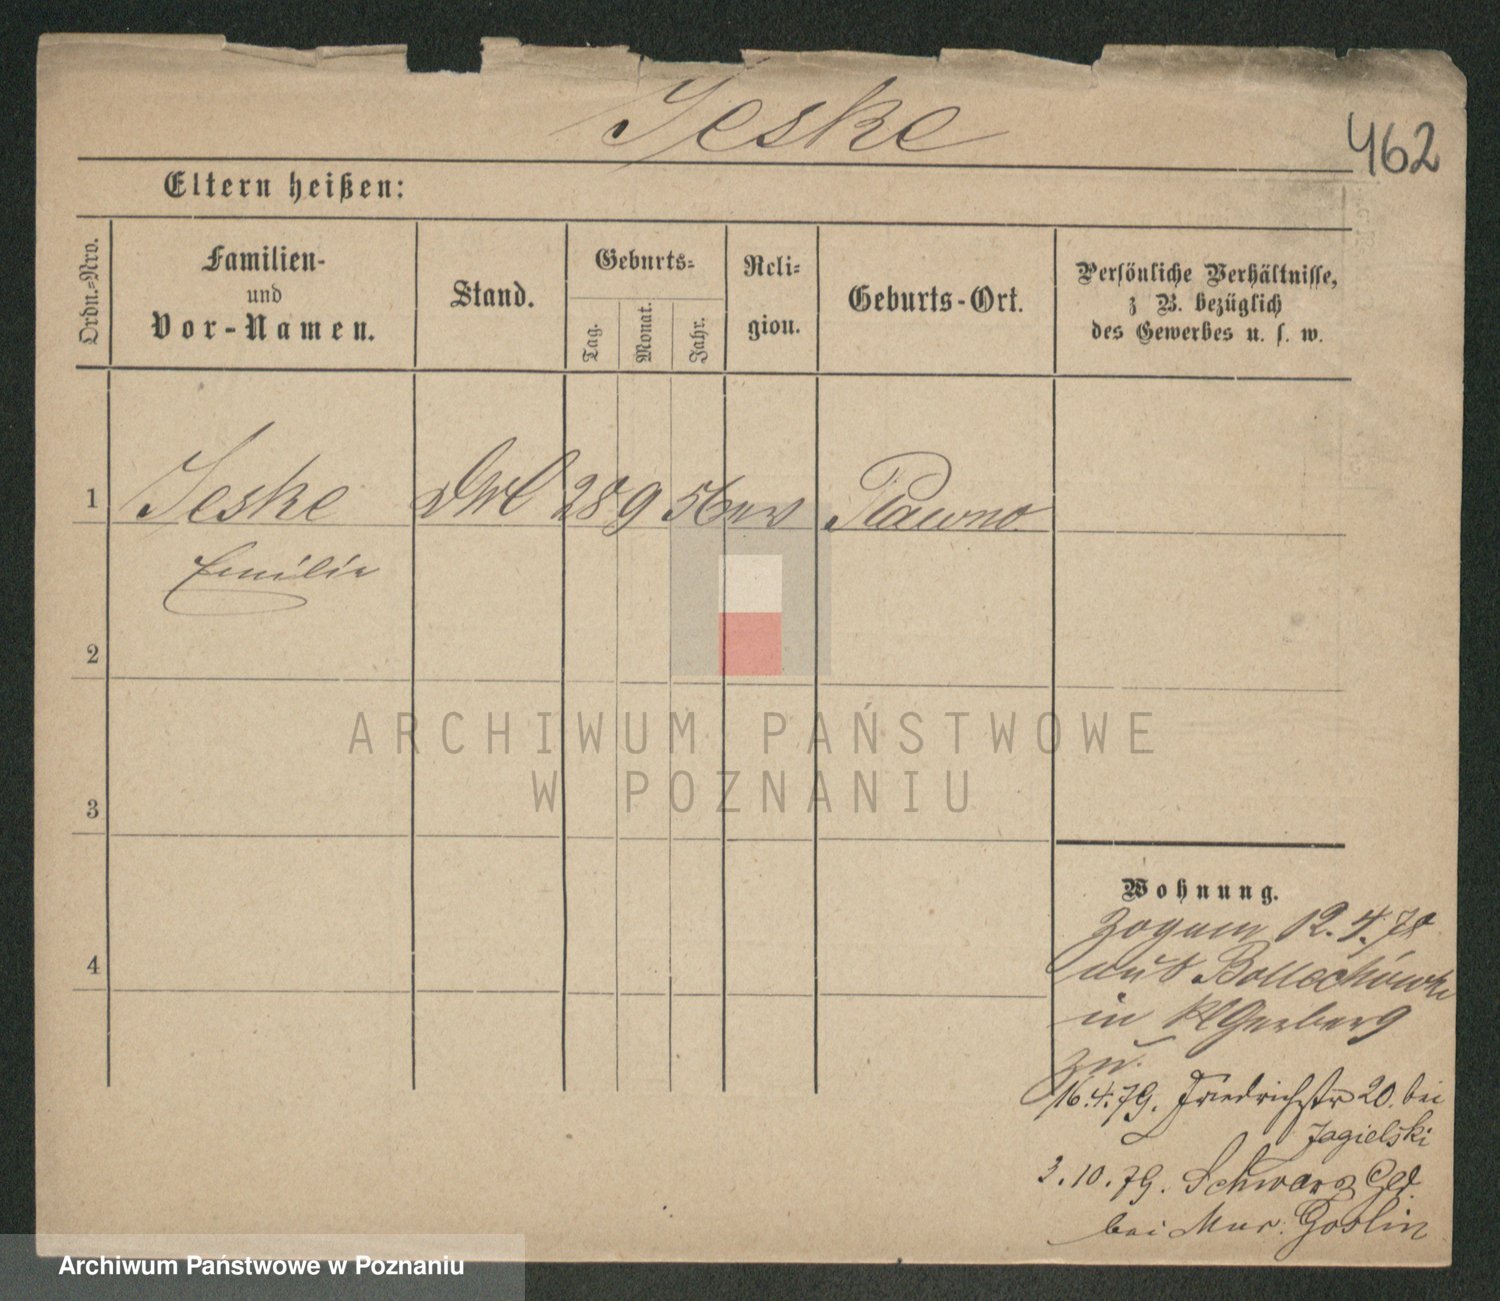 Jeske
462
Eltern heißen:
Ordn.-Nro.
Familien-
und
Vor-Namen.
Stand.
Geburts-
Tag.
Monat.
Jahr.
Reli-
gion.
Geburts-Ort.
Persönliche Verhältnisse,
z B. bezüglich
des Gewerbes u. s. w.
1
Jeske 28 9 56 ev
Emilie
2
3
4
Wohnung.
Zogam 12.4.78
aus Bollechówko
in Kl Gerberg
zu.
16.4.79. Friedrichstr 20. bei
Jagielski
3.10.79. bei Mur. Goslin
ARCHIWUM PAŃSTWOWE
W POZNANIU
Archiwum Państwowe w Poznaniu